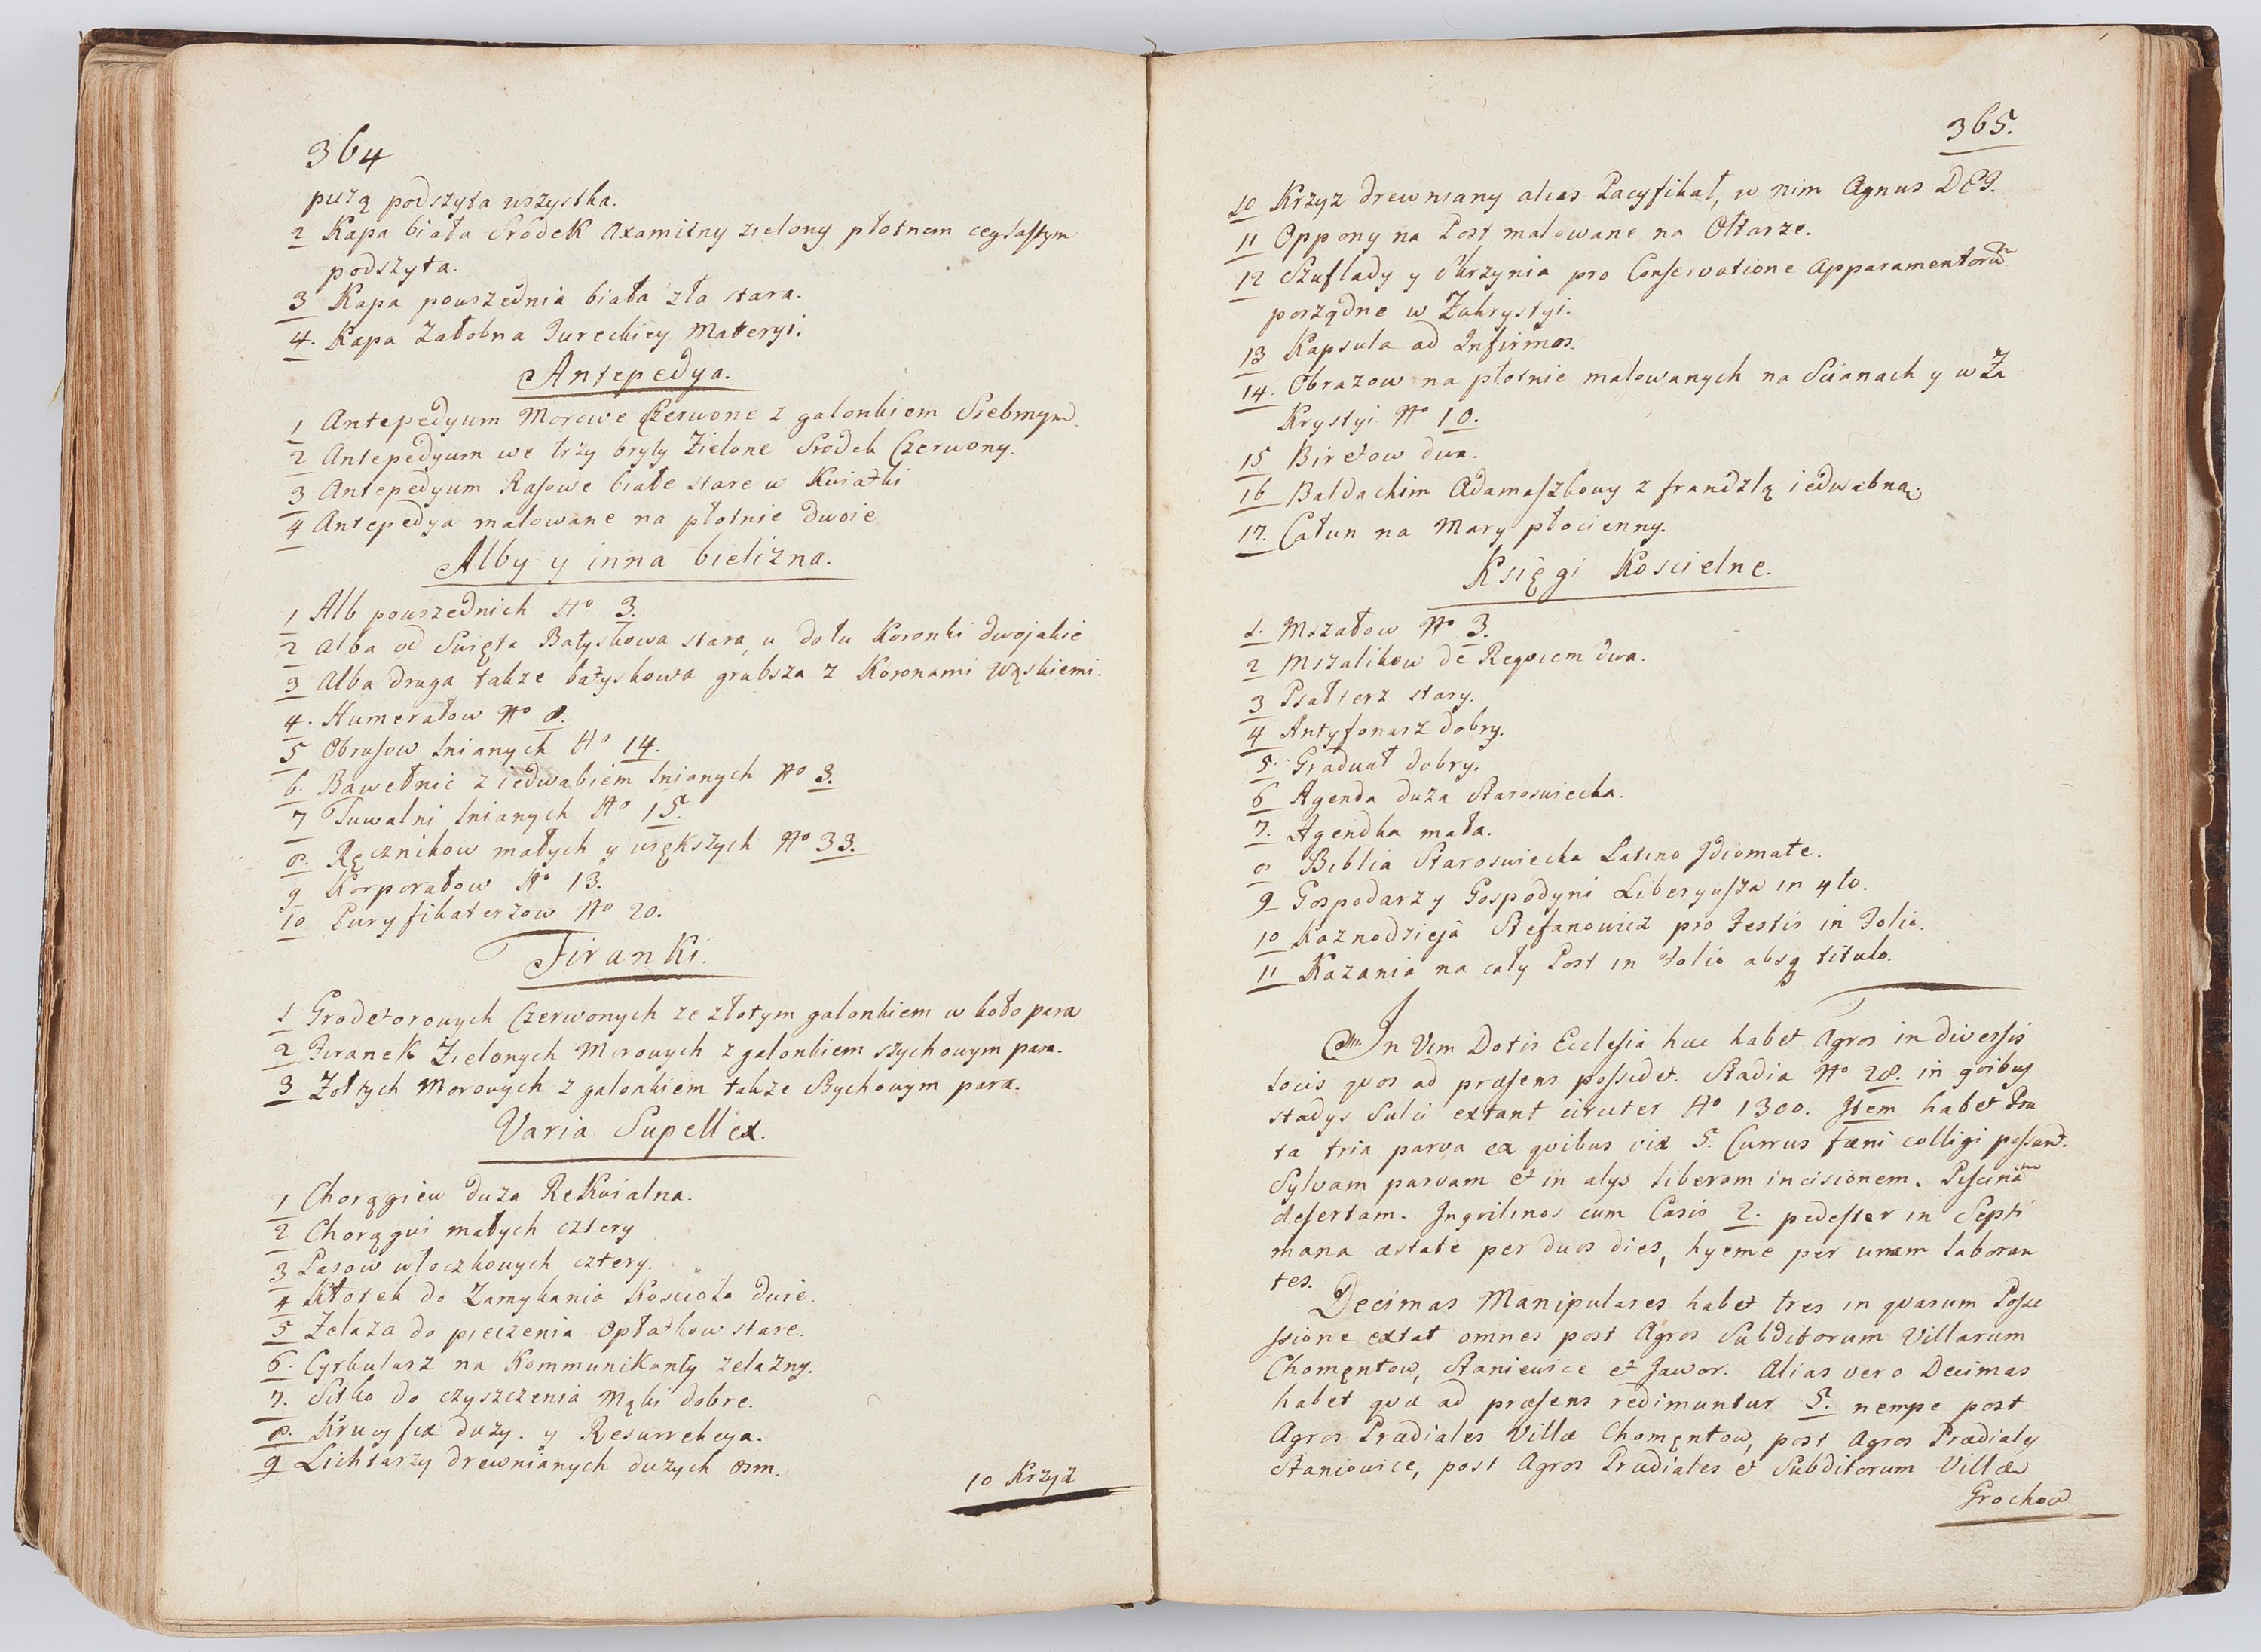 364
purą podszyta wszystka.
2 Kapa biała Srodek Axamitny zielony płotnem ceglastym
podszyta.
3 Kapa powszednia biała zła stara.
4. Kapa Załobna Tureckiey Materyi.
Antepedya.
1 Antepedyum Morowe Czerwone z galonkiem Srebrnym
2 Antepedyum we trzy bryty Zielone Srodek Czerwony.
3 Antepedyum Rasowe białe stare w Kwiatki
4 Antepedya malowane na płotnie dwoie
Alby y inna bielizna.
1 Alb powszednich No 3.
2 Alba od Swięta Batystowa stara, u dołu Koronki dwojakie
3 Alba druga także batystowa grubsza z Koronami Wąskiemi.
4. Humerałow No 8.
5 Obrusow lnianych No 14.
6. Bawełnic z iedwabiem lnianych No 3.
7 Tuwalni lnianych No 15.
8. Ręcznikow małych y większych No 33.
9 Korporałow No 13.
10 Puryfikaterzow No 20.
Firanki.
1 Grodetorowych Czerwonych ze złotym galonkiem w koło para
2 Firanek Zielonych Morowych z galonkiem szychowym para.
3 Zołtych Morowych z galonkiem także Szychowym para.
Varia Supellex.
1 Chorągiew duza Rekwialna.
2 Chorągwi małych cztery
3 Pasow włoczkowych cztery.
4 Kłotek do Zamykania Koscioła duże.
5 Zelaza do pieczenia Opłatkow stare.
6. Cyrkularz na Kommunikanty zelazny.
7. Sitko do czyszczenia Mąki dobre.
8. Krucyfix duży. y Resurrekcya.
9 Lichtarzy drewnianych dużych osm.
10 Krzyż
365.
10 Krzyz drewniany alias Pacyfikał, w nim Agnus DEI.
11 Oppony na Post malowane na Ołtarze.
12 Szuflady y Skrzynia pro Conservatione Apparamentorū
porządne w Zakrystyi.
13 Kapsula ad Infirmos.
14. Obrazow na płotnie malowanych na Scianach y w Za
Krystyi No 10.
15 Biretow dwa.
16 Baldachim Adamaszkowy z frandzlą iedwabną.
17. Całun na Mary płocienny.
Księgi Koscielne.
1. Mszałow No 3.
2 Mszalikow de Requiem dwa.
3 Psałterz stary.
4 Antyfonarz dobry.
5. Graduał dobry.
6 Agenda duża Staroswiecka.
7. Agendka mała.
8 Biblia Staroswiecka Latino Idiomate.
9 Gospodarz y Gospodyni Liberyusza in 4to.
10 Kaznodzieja Stefanowicz pro Festis in Folio.
11 Kazania na cały Post in Folio absq titulo.
In Vim Dotis Ecclesia hæc habet Agros in diversis
locis quos ad præsens possidet. Stadia No 28. in quibus
stadys Sulci extant circiter No 1300. Item habet Pra
ta tria parva ex quibus vix 5. Currus fæni colligi possunt.
Sylvam parvam et in alys liberam incisionem. Piscinam
desertam. Inquilinos cum Casis 2. pedester in Septi
mana æstate per duos dies, hyeme per unam laboran
tes.
Decimas Manipulares habet tres in quarum Posse
ssione extat omnes post Agros Subditorum Villarum
Chomęntow, Staniewice et Jawor. Alias vero Decimas
habet quæ ad præsens redimuntur 5. nempe post
Agros Prædiales Villæ Chomęntow, post Agros Prædiales
Staniowice, post Agros Prædiales et Subditorum Villæ
Grochow